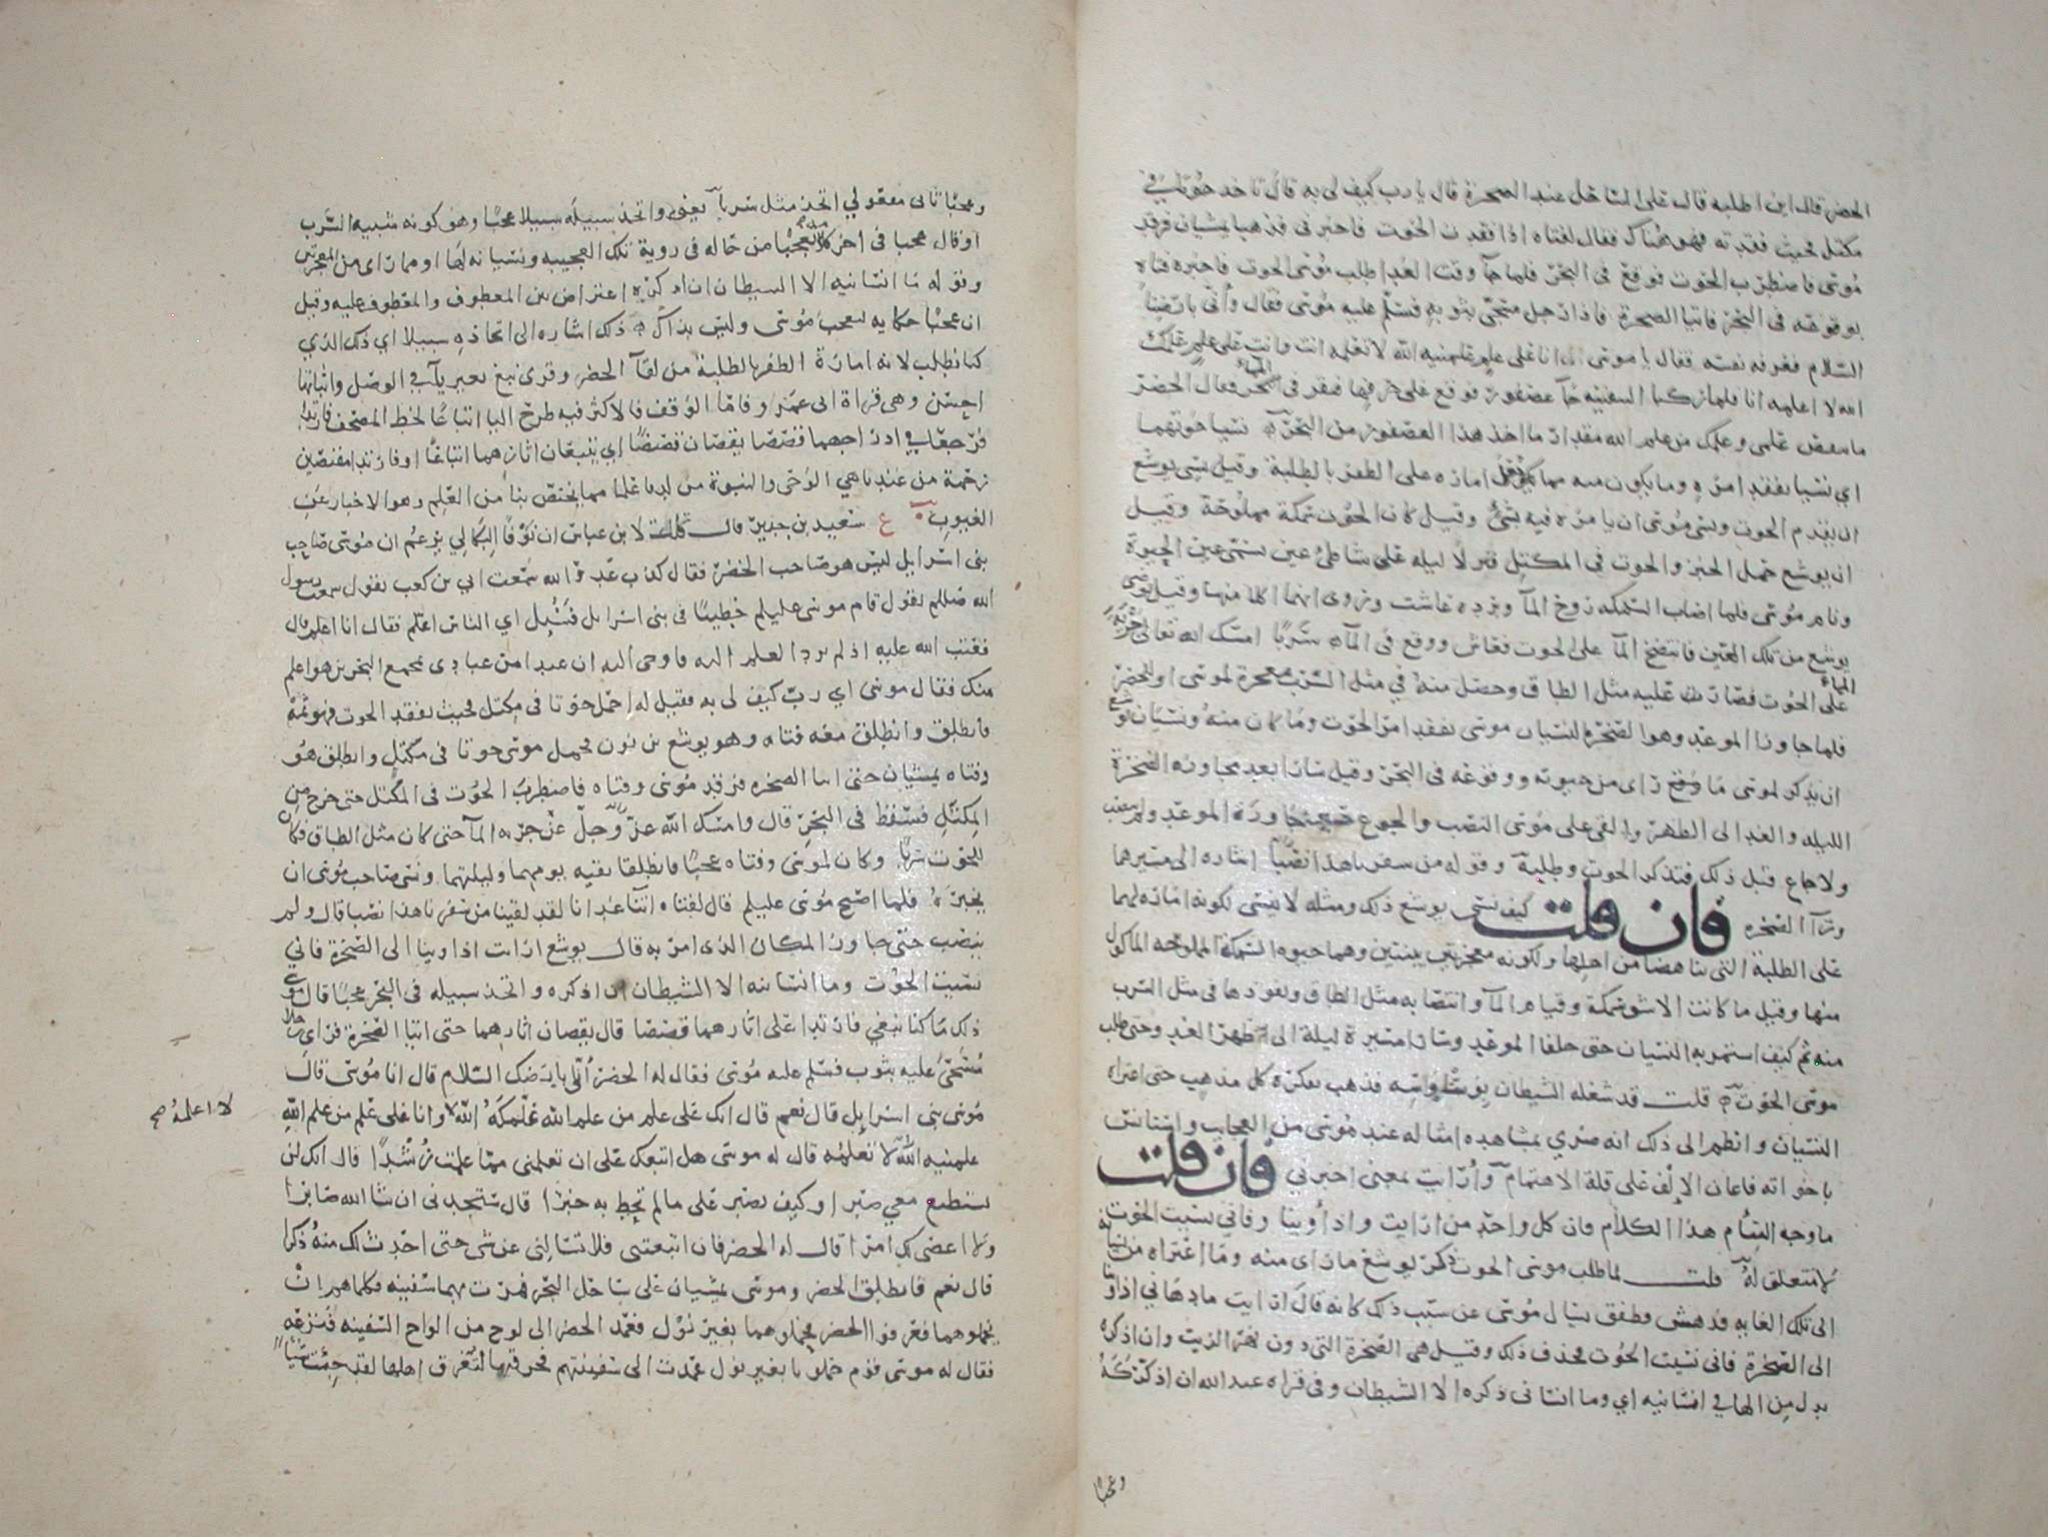 الخضر قال اين اطلبه قال على الساحل عند الصخرة قال يا رب كيف لي به قال تاخذ حوتا في
مكتل فحيث فقدته فهو هناك فقال لفتاه اذا فقدت الحوت فاخبرني فذهبا يمشيان فرقد
موسى فاضطرب الحوت فوقع في البحر فلما جآ وقت الغدا طلب موسى الحوت فاخبره فتاه
بوقوعه في البحر فاتيا الصخرة فاذا رجل مسجى بثوبه فسلم عليه موسى فقال وأنى بارضنا
السلام فعرفه نفسه فقال يا موسى انا على علم علمنيه الله لا تعلمه انت وانت على علم علمك
الله لا اعلمه انا فلما ركبا السفينه جآ عصفور فوقع على حرفها فنقر في الماء فقال الخضر
ما ينقص علمي وعلمك من علم الله مقدار ما اخذ هذا العصفور من البحر نسيا حوتهما
اي نسيا تفقد امره وما يكون منه مما جعل امارة على الظفر بالطلبة وقيل نسي يوشع
ان يقدم الحوت ونسي موسى ان يامره فيه بشئ وقيل كان الحوت سمكة مملوحة وقيل
ان يوشع حمل الخبز والحوت في المكتل فنزلا ليلة على شاطئ عين تسمى عين الحيوة
ونام موسى فلما اصاب السمكه روح المآ وبرده عاشت وروى انهما اكلا منها وقيل توضى
يوشع من تلك العين فانتضح المآ على الحوت فعاش ووقع في المآ سربا امسك الله تعالى جرية الماء
على الحوت فصارت عليه مثل الطاق وحصل منه في مثل السرب معجزة لموسى او للخضر
فلما جاوزا الموعد وهو الصخرة لنسيان موسى تفقد امر الحوت وما كان منه ونسيان يوشع
ان يذكر لموسى ما راى من حيوته ووقوعه في البحر وقيل سارا بعد مجاوزه الصخرة
الليله والغد الى الظهر والقي على موسى النصب والجوع حين جاوزا الموعد ولم ينصب
ولا جاع قبل ذلك فتذكر الحوت وطلبه وقوله من سفرنا هذا نصبا اشاره الى مسيرهما
ورآ الصخره فان قلت كيف نسي يوشع ذلك ومثله لا ينسى لكونه امارة لهما
على الطلبة التي تناهضا من اجلها ولكونه معجزتين بينتين وهما حيوه السمكة المملوحه الماكول
منها وقيل ما كانت الا شق سمكة وقيام المآ وانتصابه مثل الطاق ونفوذها في مثل السرب
منه ثم كيف استمر به النسيان حتى خلفا الموعد وسارا مسيرة ليلة الى ظهر الغد وحتى طلب
موسى الحوت قلت قد شغله الشيطان بوساوسه فذهب بفكره كل مذهب حتى اعتراه
النسيان وانظم الى ذلك انه ضري بمشاهده امثاله عند موسى من العجايب واستانس
باخواته فاعان الالف على قلة الاهتمام وأرايت بمعنى اخبرني فان قلت
ما وجه التئام هذا الكلام فان كل واحد من ارايت واذ أوينا وفاني نسيت الحوت
لا متعلق له قلت لما طلب موسى الحوت ذكر يوشع ما راى منه وما اعتراه من نسيانه
الى تلك الغايه فدهش وطفق يسال موسى عن سبب ذلك كانه قال ارايت ما دهاني اذ اوينا
الى الصخرة فاني نسيت الحوت فحذف ذلك وقيل هي الصخرة التي دون نهر الزيت وان اذكره
بدل من الها في انسانيه اي وما انساني ذكره الا الشيطان وفي قراه عبد الله ان اذكركه
وعجبا
وعجبا ثاني مفعولي اتخذ مثل سربا يعني واتخذ سبيله سبيلا عجبا وهو كونه شبيه السرب
او قال عجبا في اخر كلامه تعجبا من حاله في روية تلك العجيبه ونسيانه لها او مما راى من المعجزتين
وقوله وما انسانيه الا الشيطان ان اذكره اعتراض بين المعطوف والمعطوف عليه وقيل
ان عجبا حكايه لتعجب موسى وليس بذاك ذلك اشاره الى اتخاذه سبيلا اي ذلك الذي
كنا نطلب لانه امارة الظفر بالطلبة من لقآ الخضر وقرى نبغ بغير يآ في الوصل واثباتها
احسن وهي قراة ابي عمرو واما الوقف فالاكثر فيه طرح اليا اتباعا لخط المصحف فارتدا
فرجعا في ادراجهما قصصا يقصان قصصا اي يتبعان اثارهما اتباعا او فارتدا مقتصين
رحمة من عندنا هي الوحى والنبوة من لدنا علما مما يختص بنا من العلم وهو الاخبار عن
الغيوب ع سعيد بن جبير قال قلت لابن عباس ان نوفا البكالي يزعم ان موسى صاحب
بني اسرايل ليس هو صاحب الخضر فقال كذب عدو الله سمعت ابي بن كعب يقول سمعت رسول
الله صللم يقول قام موسى عليلم خطيبا في بني اسرايل فسئل اي الناس اعلم فقال انا اعلم قال
فعتب الله عليه اذ لم يرد العلم اليه فاوحى اليه ان عبدا من عبادي بمجمع البحرين هو اعلم
منك فقال موسى اي رب كيف لي به فقيل له احمل حوتا في مكتل فحيث تفقد الحوت فهو ثمة
فانطلق وانطلق معه فتاه وهو يوشع بن نون فحمل موسى حوتا في مكتل وانطلق هو
وفتاه يمشيان حتى اتيا الصخره فرقد موسى وفتاه فاضطرب الحوت في المكتل حتى خرج من
المكتل فسقط في البحر قال وامسك الله عز وجل عن جرية المآ حتى كان مثل الطاق فكان
للحوت سربا وكان لموسى وفتاه عجبا فانطلقا بقيه يومهما وليلتهما ونسي صاحب موسى ان
يخبره فلما اصبح موسى عليلم قال لفتاه اتنا غدانا لقد لقينا من سفرنا هذا نصبا قال ولم
ينصب حتى جاوز المكان الذي امر به قال يوشع ارايت اذ اوينا الى الصخرة فاني
نسيت الحوت وما انسانيه الا الشيطان ان اذكره واتخذ سبيله في البحر عجبا قال موسى
ذلك ما كنا نبغي فارتدا على اثارهما قصصا قال يقصان اثارهما حتى اتيا الصخرة فراى رجلا
مسجى عليه بثوب فسلم عليه موسى فقال له الخضر أنى بارضك السلام قال انا موسى قال
موسى بني اسرايل قال نعم قال انك على علم من علم الله علمكه الله وانا على علم من علم الله
لا اعلمه صح
علمنيه الله لا تعلمه قال له موسى هل اتبعك على ان تعلمني مما علمت رشدا قال انك لن
تستطيع معي صبرا وكيف تصبر على ما لم تحط به خبرا قال ستجدني ان شا الله صابرا
ولا اعصي لك امرا قال له الخضر فان اتبعتني فلا تسالني عن شى حتى احدث لك منه ذكرا
قال نعم فانطلق الخضر وموسى يمشيان على ساحل البحر فمرت بهما سفينه فكلماهم ان
يحملوهما فعرفوا الخضر فحملوهما بغير نول فعمد الخضر الى لوح من الواح السفينه فنزعه
فقال له موسى قوم حملونا بغير نول عمدت الى سفينتهم فخرقتها لتغرق اهلها لقد جئت شيئا